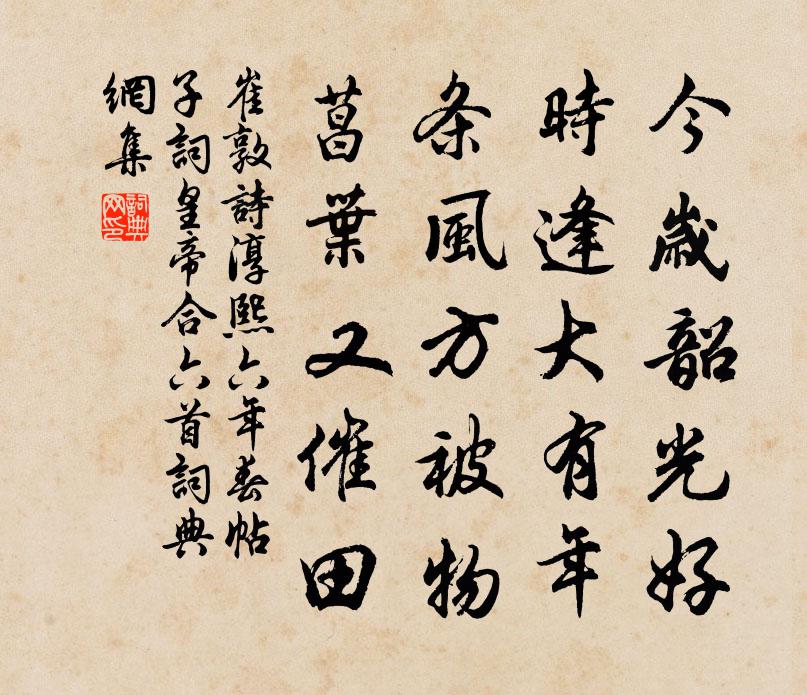 今歲韶光好
時逢大有年
条風方被物
菖葉又催田
崔敦詩淳熙六年春帖
子詞皇帝合六首詞典
網集
詞典
网印